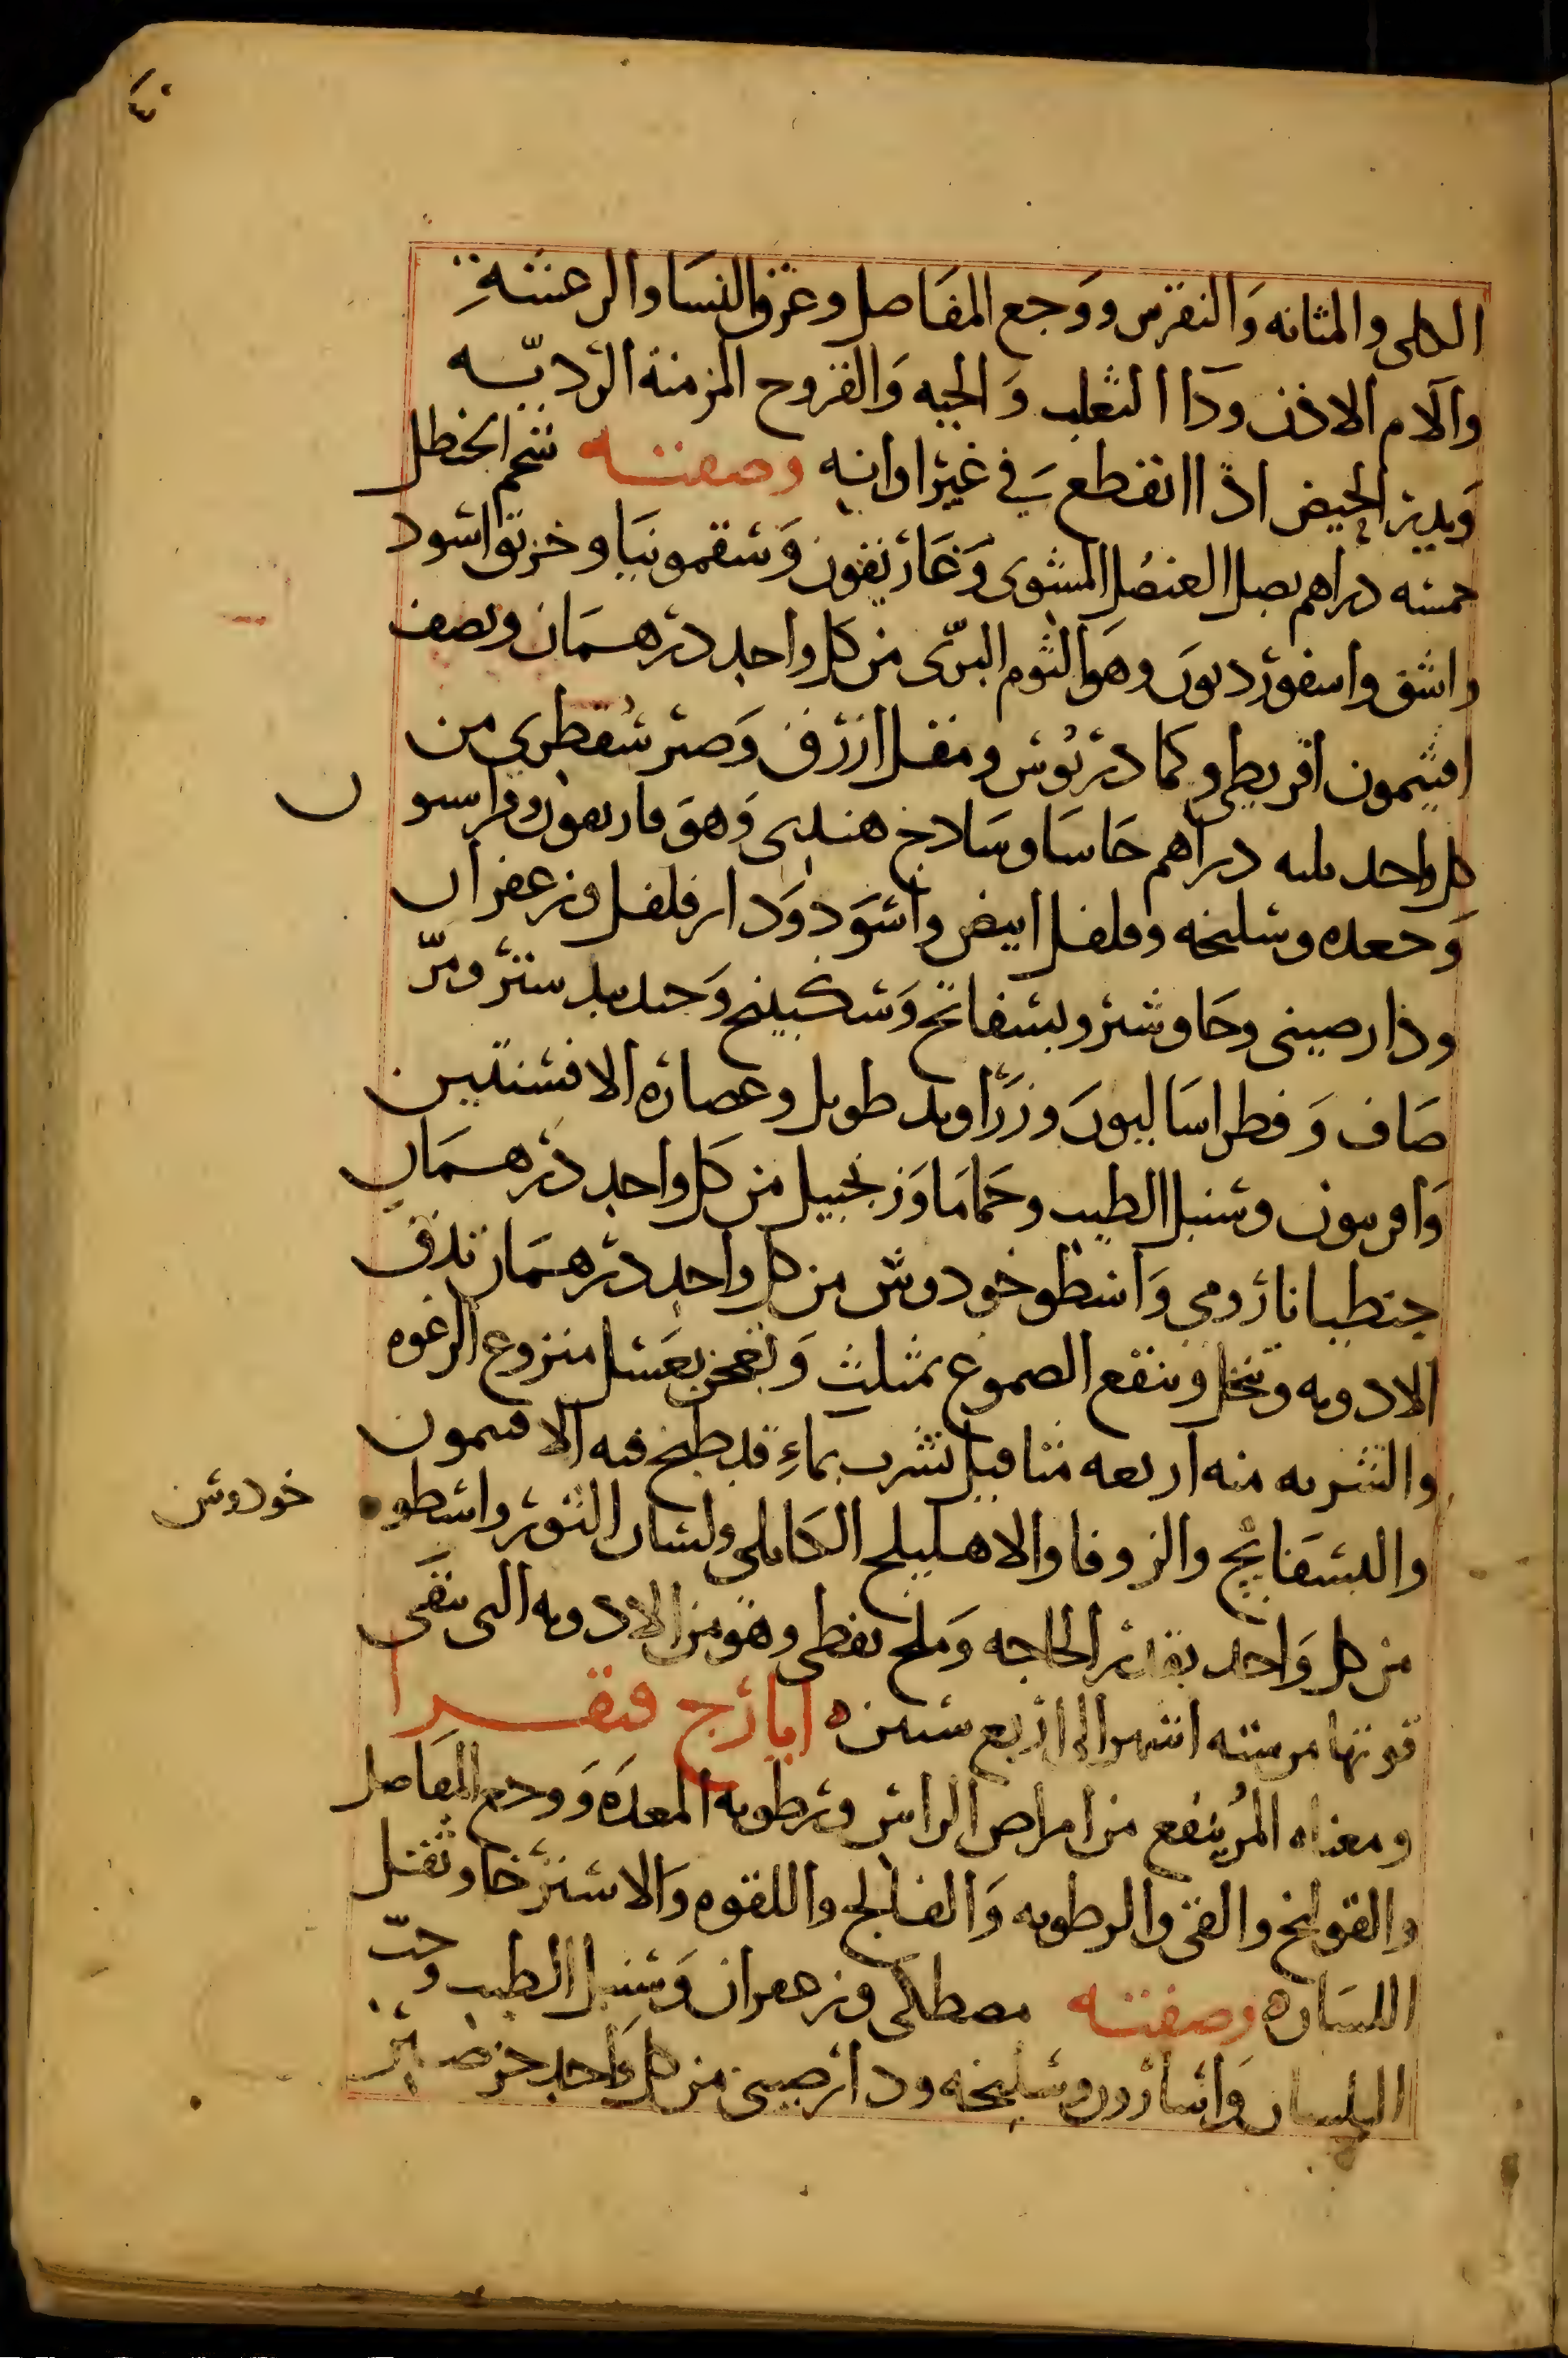 الكلى والمثانه وَالنقرس وَوَجع المفَاصل وعرق النسَا والرعشةِ
وآلام الاذن ودَاا الثعلب وَالحيه وَالقروح المزمنة الرديّه
وَيدير الحيض اذا انقطع في غير اوانه وصفته شحم الحنظل
خمسه دراهم بصل العنصُل المشوى وَغَاريقون وَسقمونيَا وخربق اسود
واشق واسقورديون وهوَ الثوم البرّى من كل واحد درهمَان ونصف
افيثمون اقريطي وكمادريُوس ومقل ازرق وَصبر سُقطري من
كل واحد ثلثه دراهم حَاسَا وسَادج هندى وَهوَ فاريقون وفراسيو ن
وَجعده وسليخه وفلفل ابيض واسَود وَدار فلفل وزعفران
ودارصيني وجَاوشير وبسفائج وَسكبينج وَجندبيدستر ومرّ
صَاف وَفطراسَاليون وزرَاوند طويل وعصاره الافسنتين
وَافربيون وسنبل الطيب وحَمامَا وَزنجبيل من كل واحد درهمَان
جنطيانا رومي وَاسطوخودوس من كل واحد درهمَان تدق
الادويه وَتنخل وينقع الصموغ بمثلث وَتعجن بعَسل منزوع الرغوه
والشربه منه اربعه مثاقيل تشرب بماءِ قد طبخ فيه الافيمون
والبسفَايج والزوفا والاهليلج الكابلى ولسان الثور واسطو
خودوس
من كل وَاحد بقدر الحاجه وَملح نفطى وهوَ من الادويه التى تبقَى
قوتها من سته اشهر الى اربع سنين ه ايارج فيقرا
ومعناه المُر ينفع من امراض الراس ورطوبه المعدَه وَوجع المفاصل
والقولنج والقئ والرطوبه وَالفالج واللقوه وَالاسترخا وثقل
اللسَان ه وصفته مصطكى وزعفران وَسنبل الطيب وحبّ
البلسان وَاسارون وسليخه ودارصينى من كل واحد جز صبر